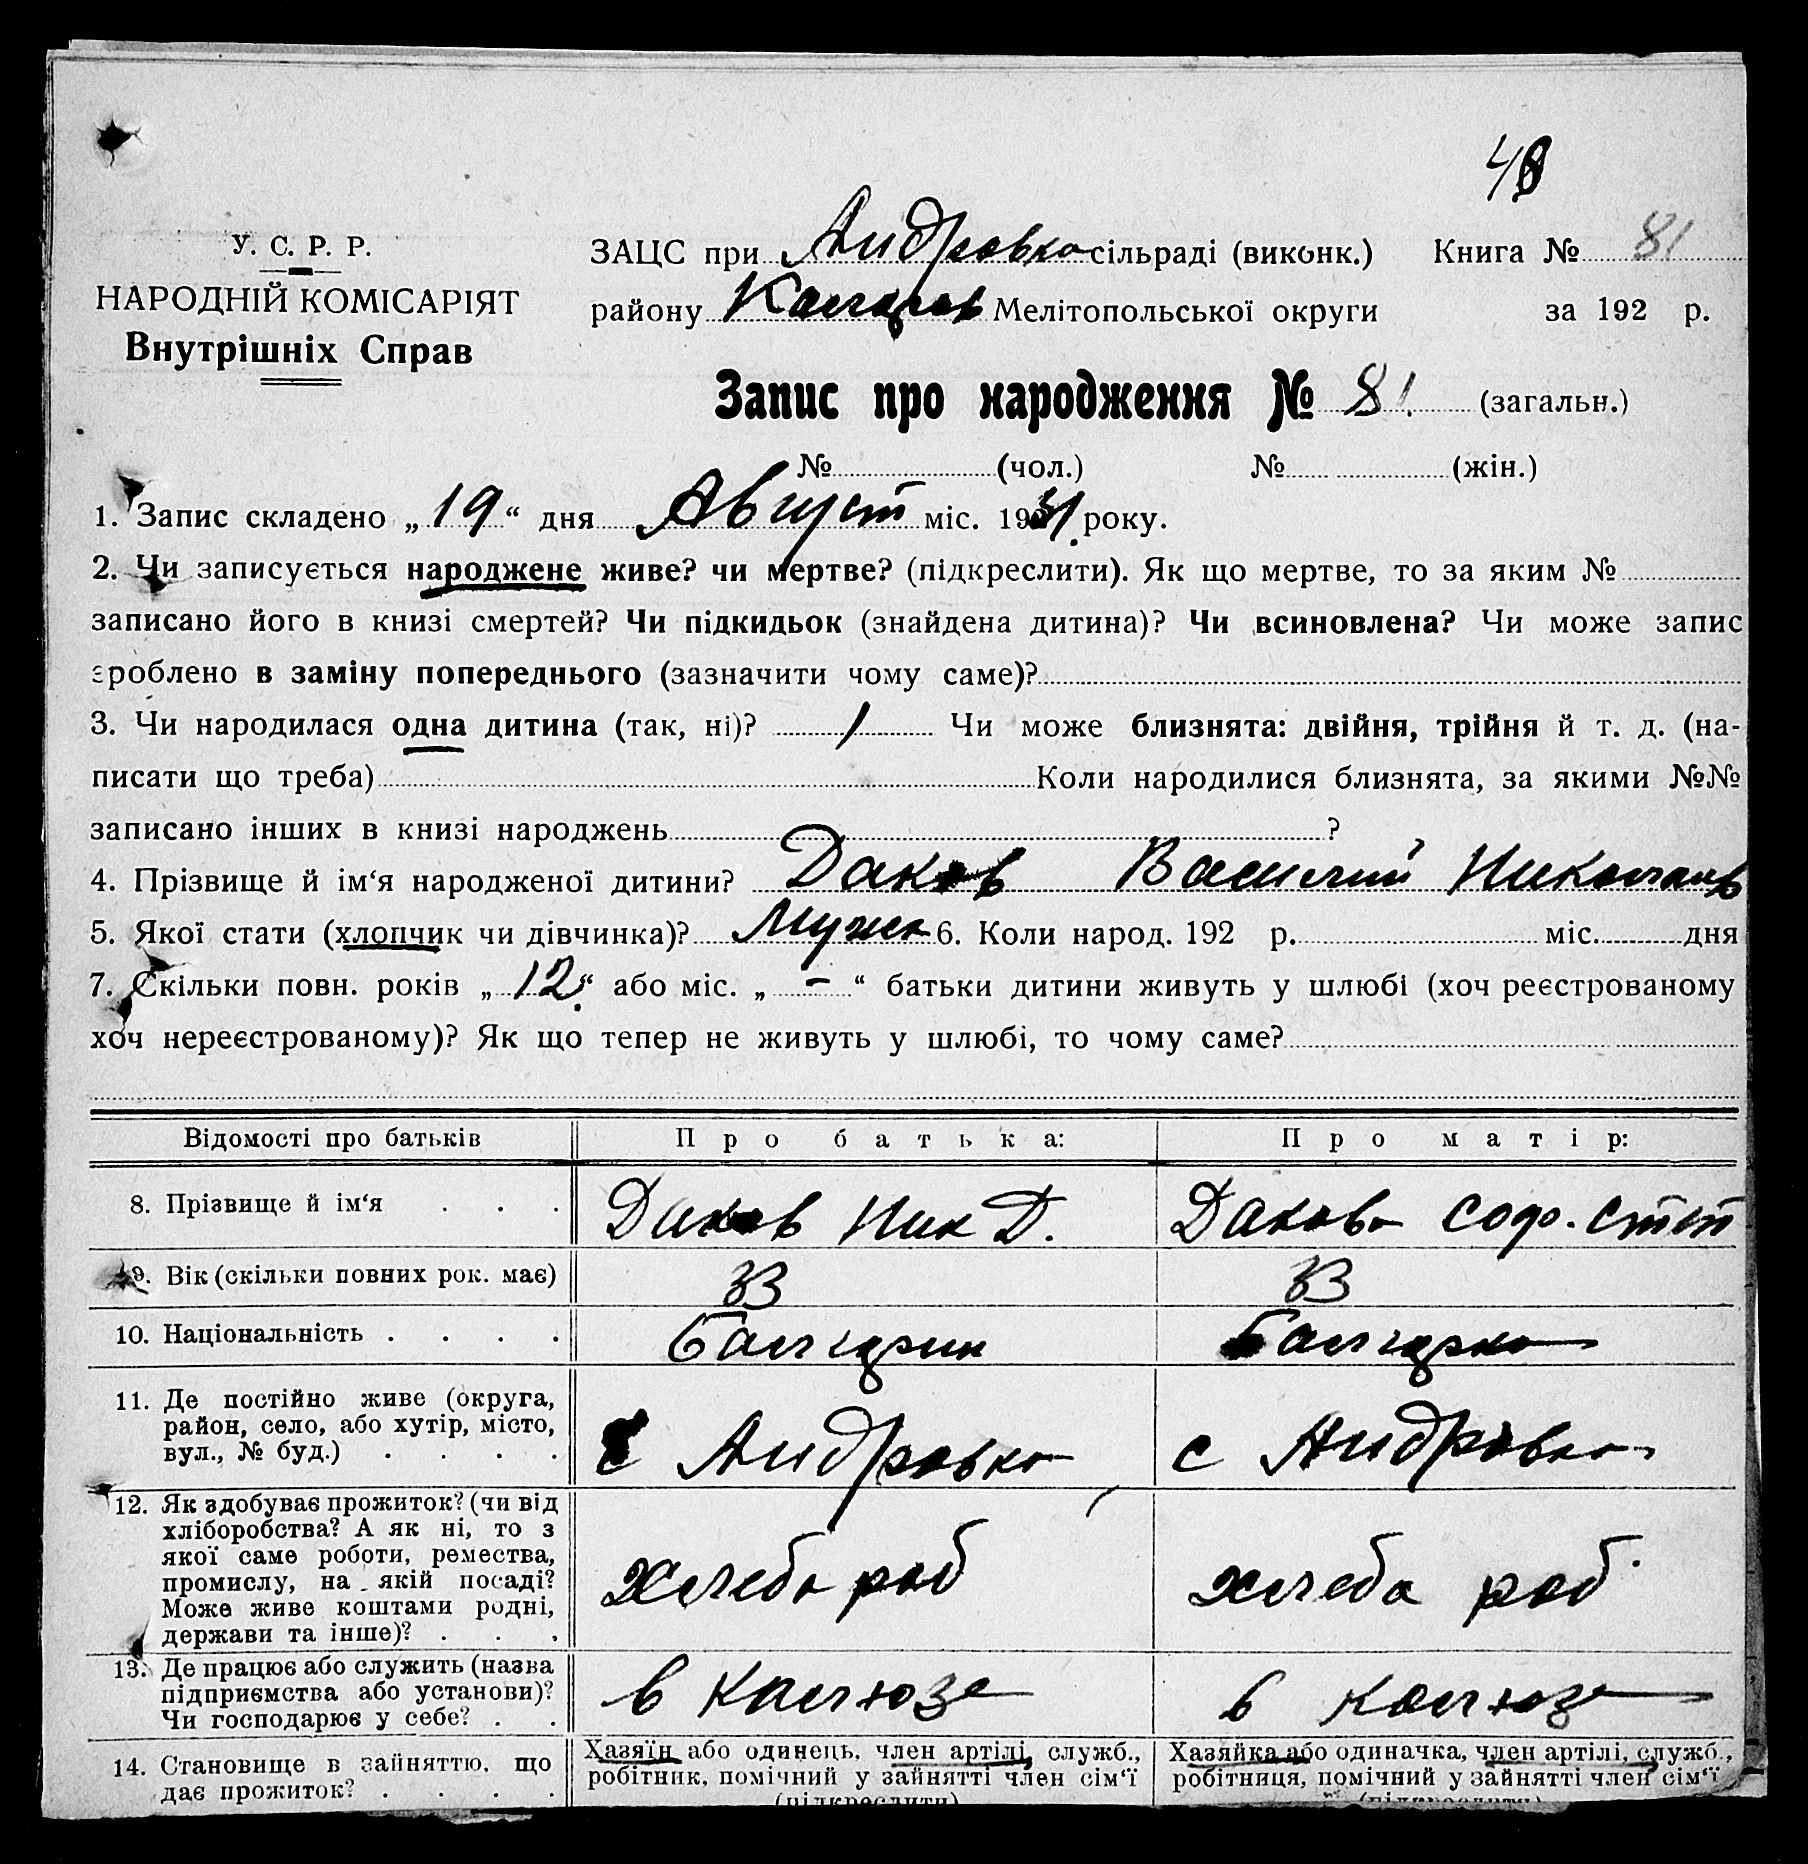 48
У. С. Р. Р.
НАРОДНІЙ КОМІСАРІЯТ
Внутрішніх Справ
ЗАЦС при Андровка сільраді (виконк.) Книга № 81
району Калцров Мелітопольської округи за 192 р.
Запис про народження № 81. (загальн.)
№ (чол.) № (жін.)
1. Запис складено „19“ дня Август міс. 1931 року.
2. Чи записується народжене живе? чи мертве? (підкреслити). Як що мертве, то за яким №
записано його в книзі смертей? Чи підкидьок (знайдена дитина)? Чи всиновлена? Чи може запис
зроблено в заміну попереднього (зазначити чому саме)?
3. Чи народилася одна дитина (так, ні)? 1 Чи може близнята: двійня, трійня й т. д. (на-
писати що треба) Коли народилися близнята, за якими №№
записано інших в книзі народжень ?
4. Прізвище й ім‘я народженої дитини? Даков Василий Николаев
5. Якої стати (хлопчик чи дівчинка)? Мужс 6. Коли народ. 192 р. міс. дня
7. Скільки повн. років „12“ або міс. „-“ батьки дитини живуть у шлюбі (хоч реєстрованому
хоч нереєстрованому)? Як що тепер не живуть у шлюбі, то чому саме?
Відомості про батьків Про батька: Про матір:
8. Прізвище й ім‘я . . . Даков Ник Д. Дакова Соф. Степ
9. Вік (скільки повних рок. має) 33 33
10. Національність . . . . болгарин болгарка
11. Де постійно живе (округа,
район, село, або хутір, місто,
вул., № буд.) . . . . с Андровка с Андровка
12. Як здобуває прожиток? (чи від
хліборобства? А як ні, то з
якої саме роботи, ремества,
промислу, на якій посаді?
Може живе коштами родні,
держави та інше)? . . . хлеба роб хлеба роб.
13. Де працює або служить (назва
підприємства або установи)?
Чи господарює у себе? . . в колхозе в колхозе
14. Становище в зайняттю, що
дає прожиток? . . . .
Хазяїн або одинець, член артілі, служб.,
робітник, помічний у зайнятті член сім‘ї
(підкреслити)
Хазяйка або одиначка, член артілі, служб.,
робітниця, помічний у зайнятті член сім‘ї
(підкреслити)